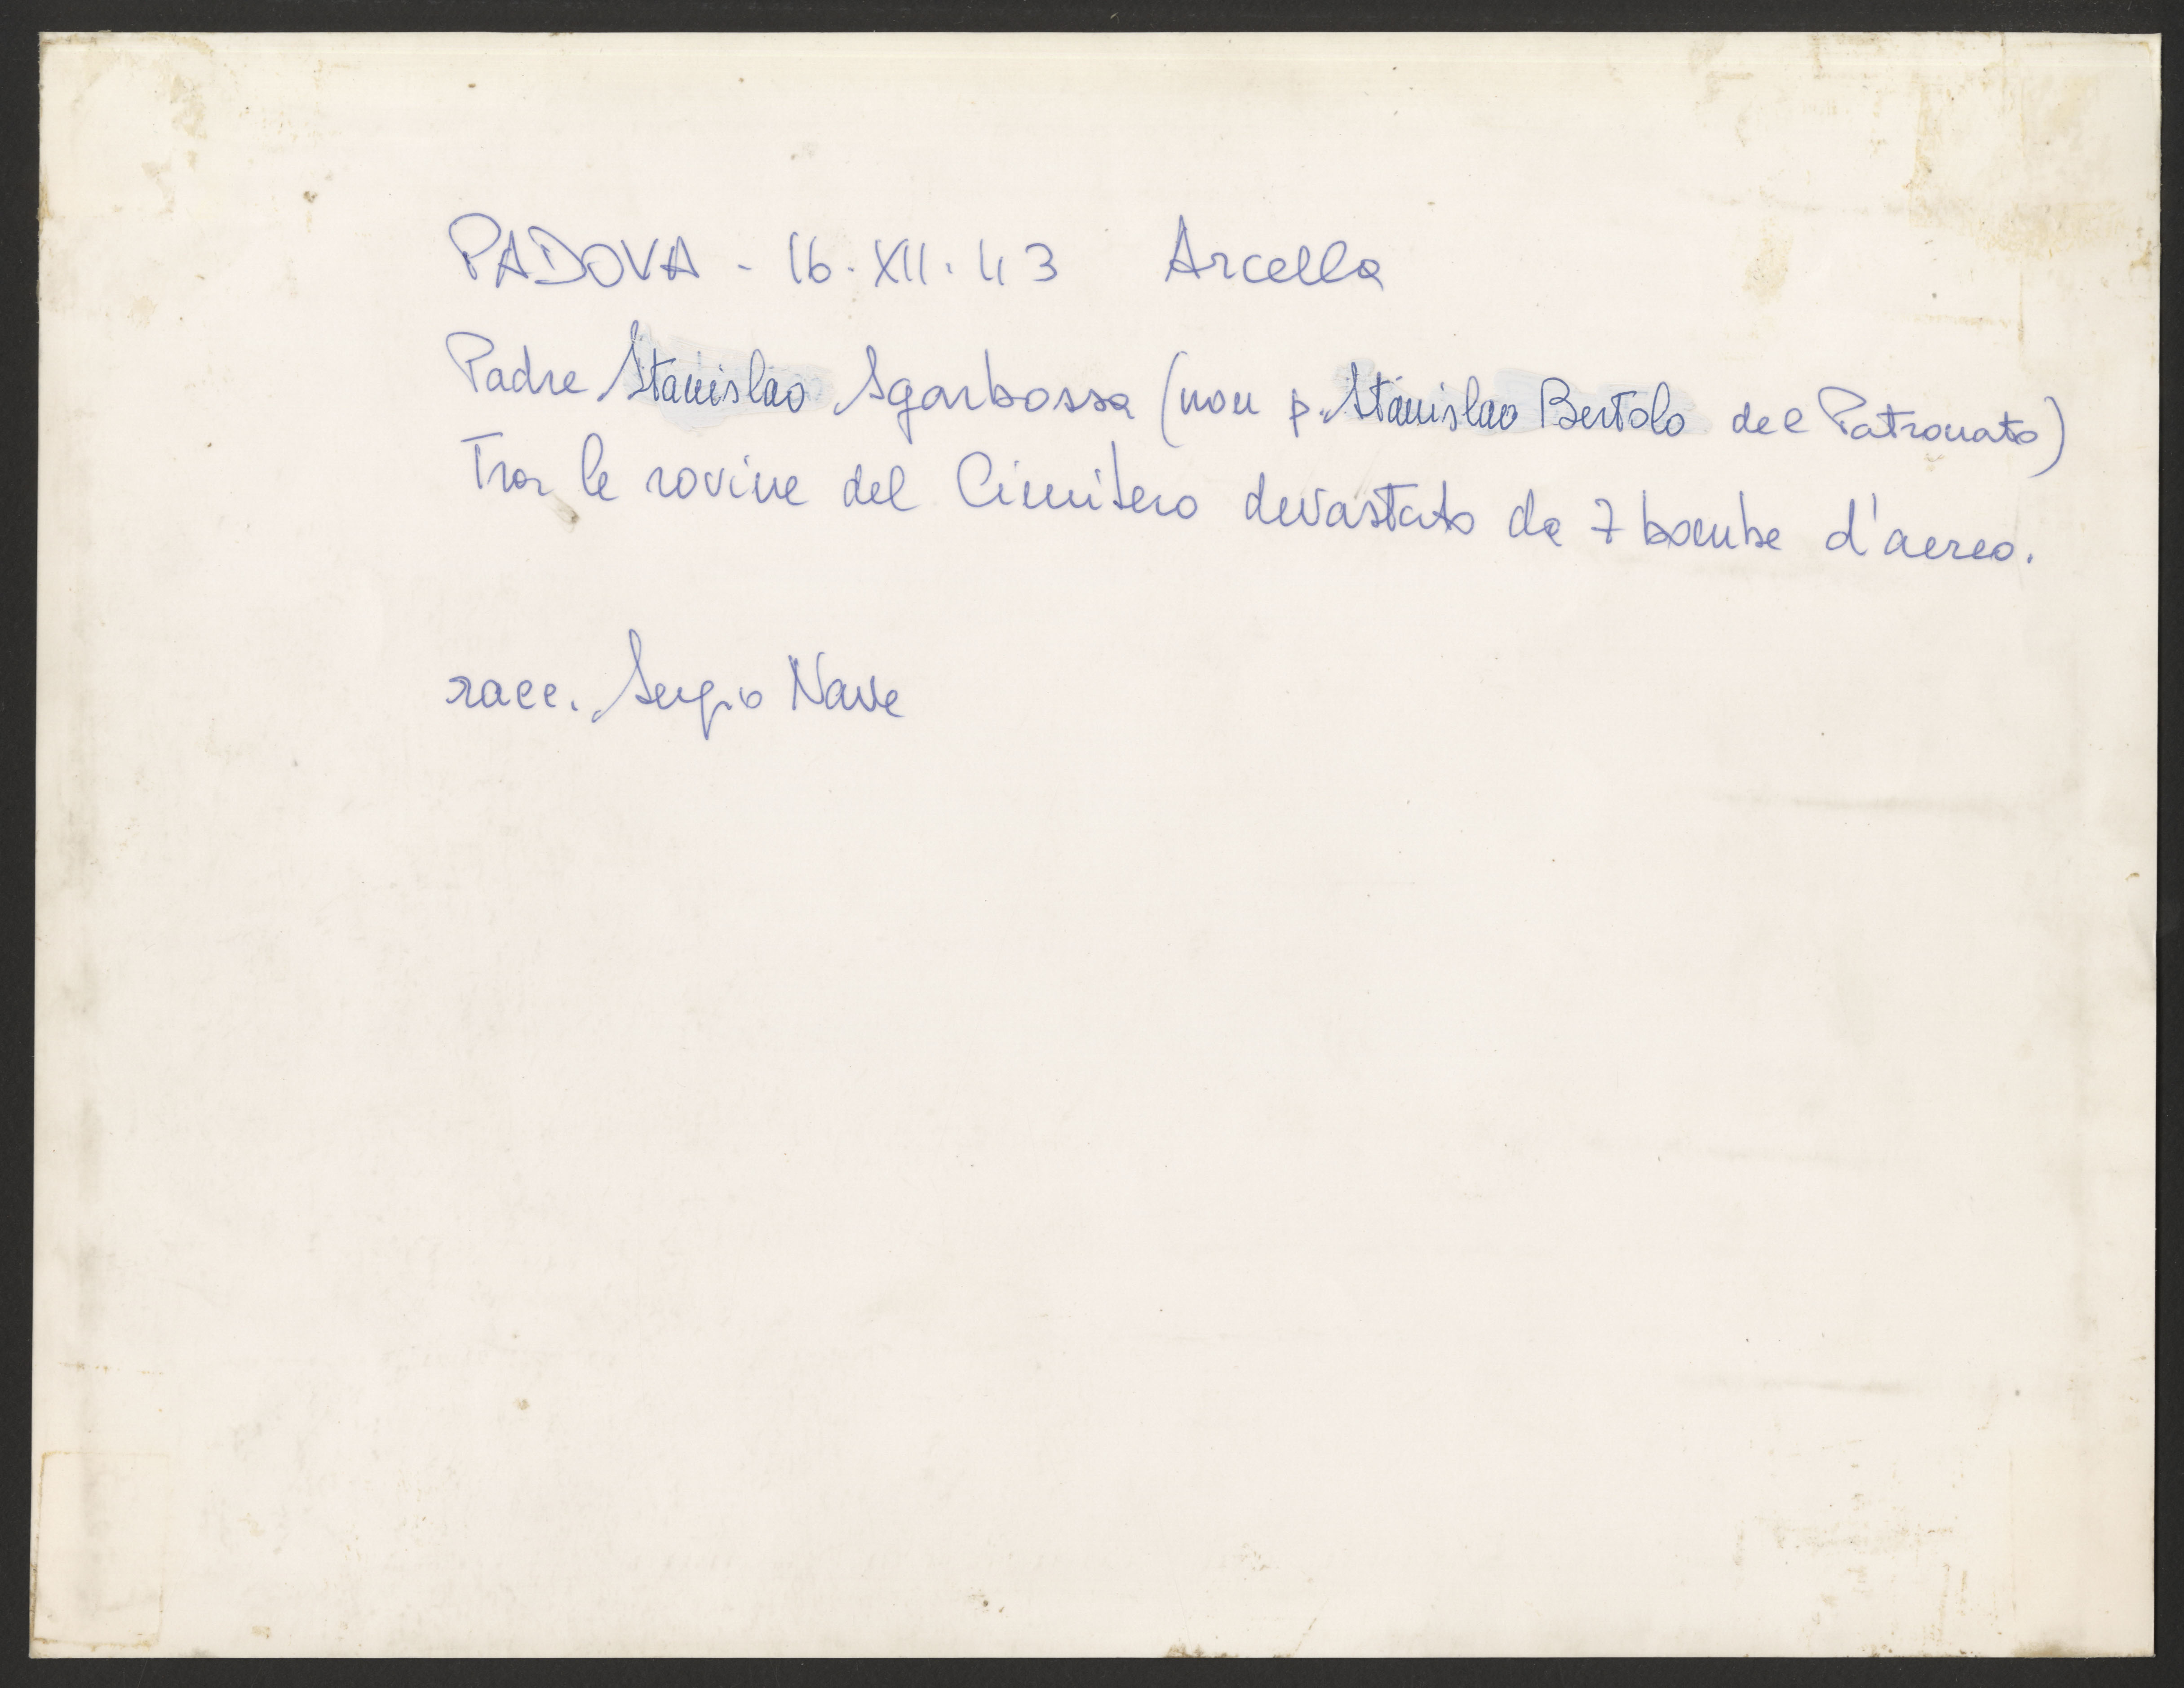 PADOVA - 16. XII. 43 Arcella
Padre Stanislao Sgarbossa (non p. Stanislao Bertolo del Patronato)
Tra le rovine del Cimitero devastato da 7 bombe d'aereo.
racc. Sergio Nave